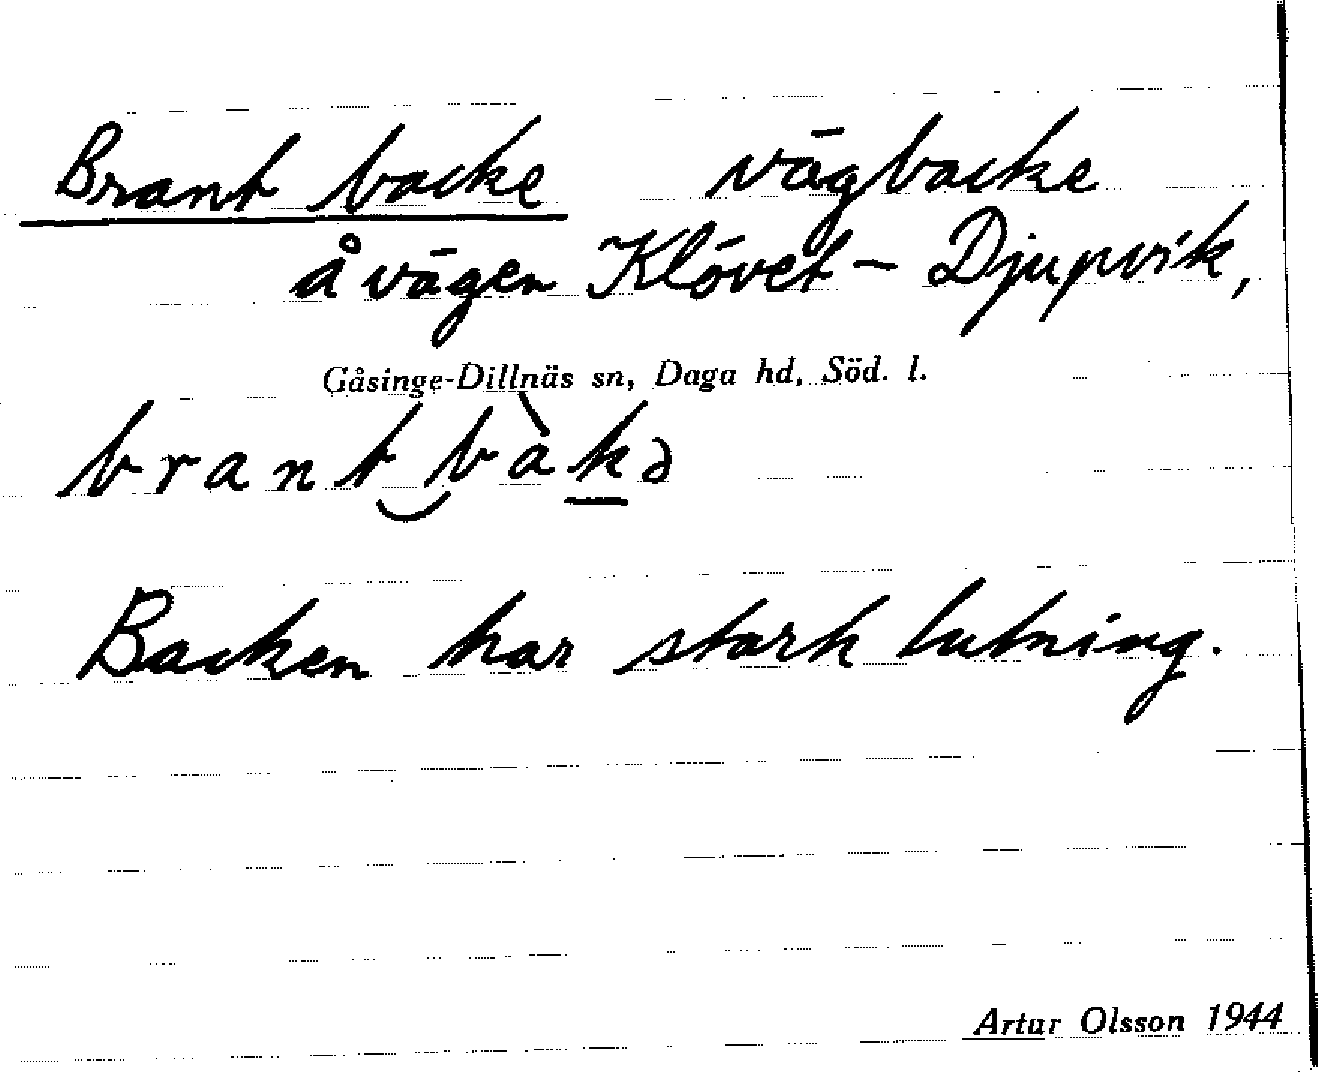 Brant backe vägbacke
å vägen Klövet – Djupvik,
Gåsinge-Dillnäs sn, Daga hd, Söd. l.
brant‿bàk̲ə
Backen har stark lutning.
Artur Olsson 1944